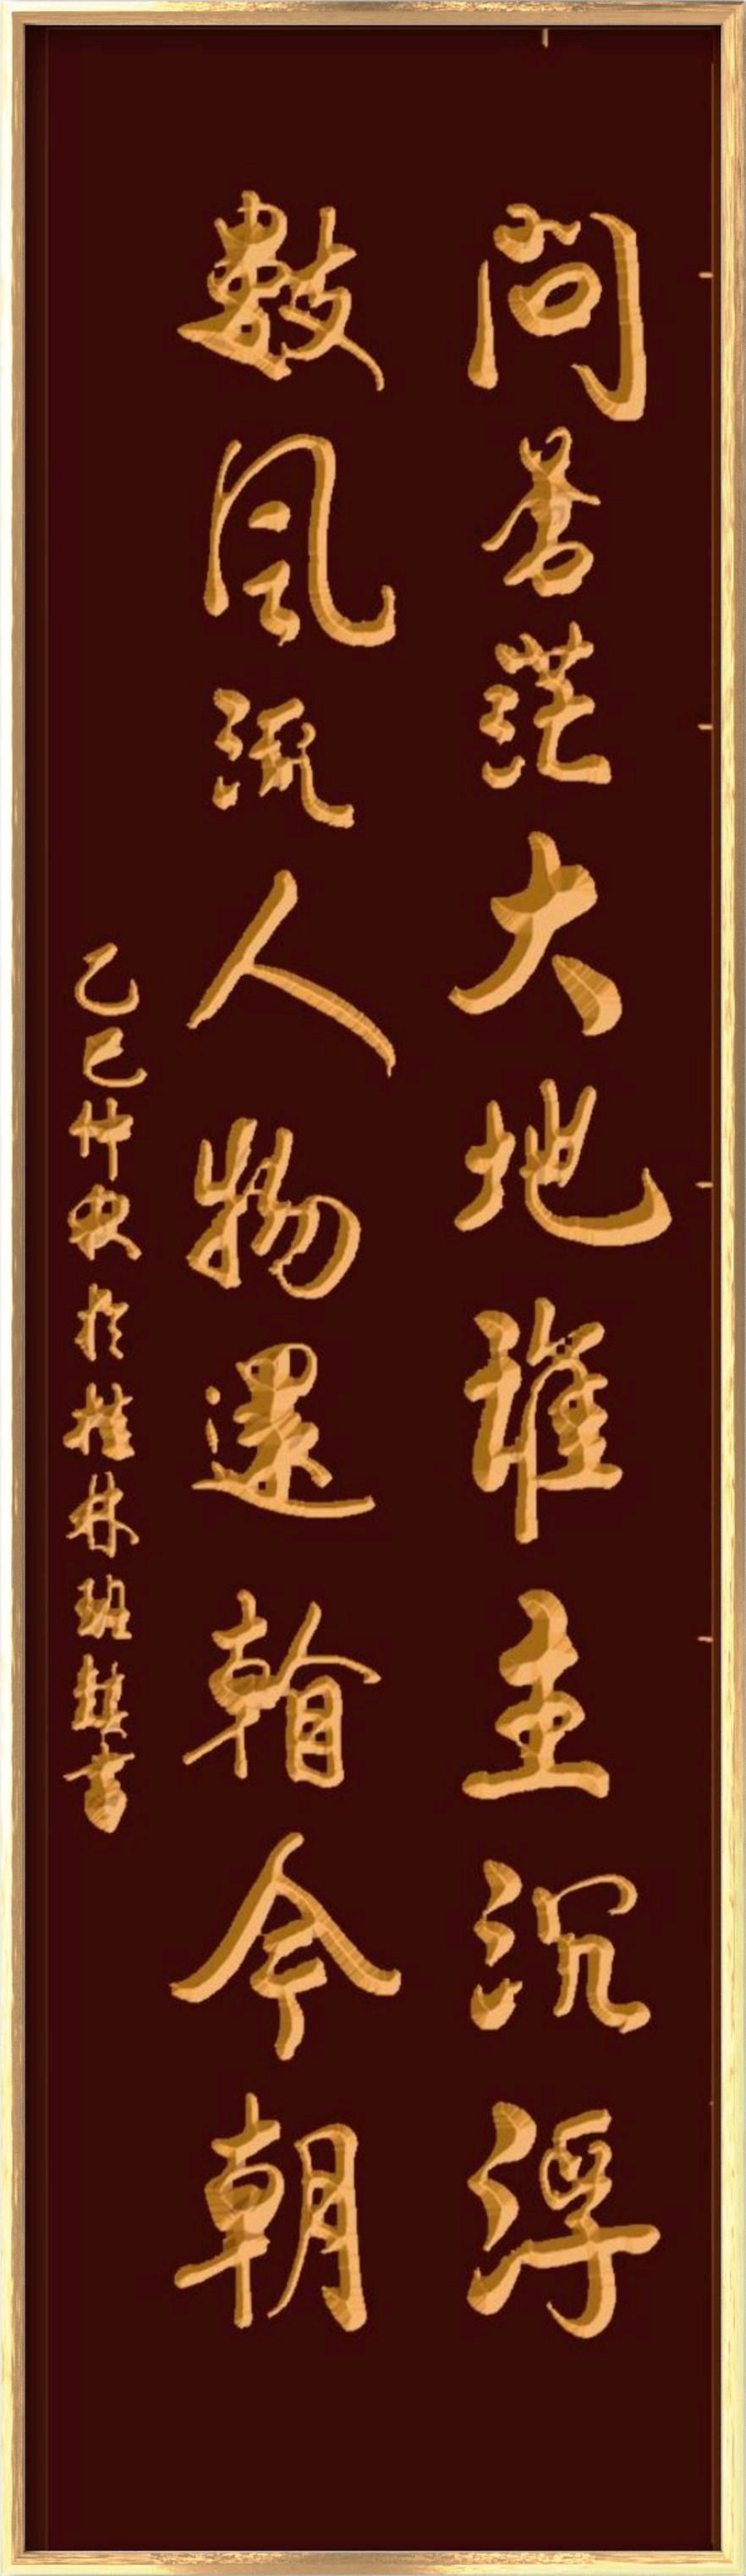 問蒼茫大地誰主沉浮
數風流人物還看今朝
乙巳仲秋於桂林班麟書